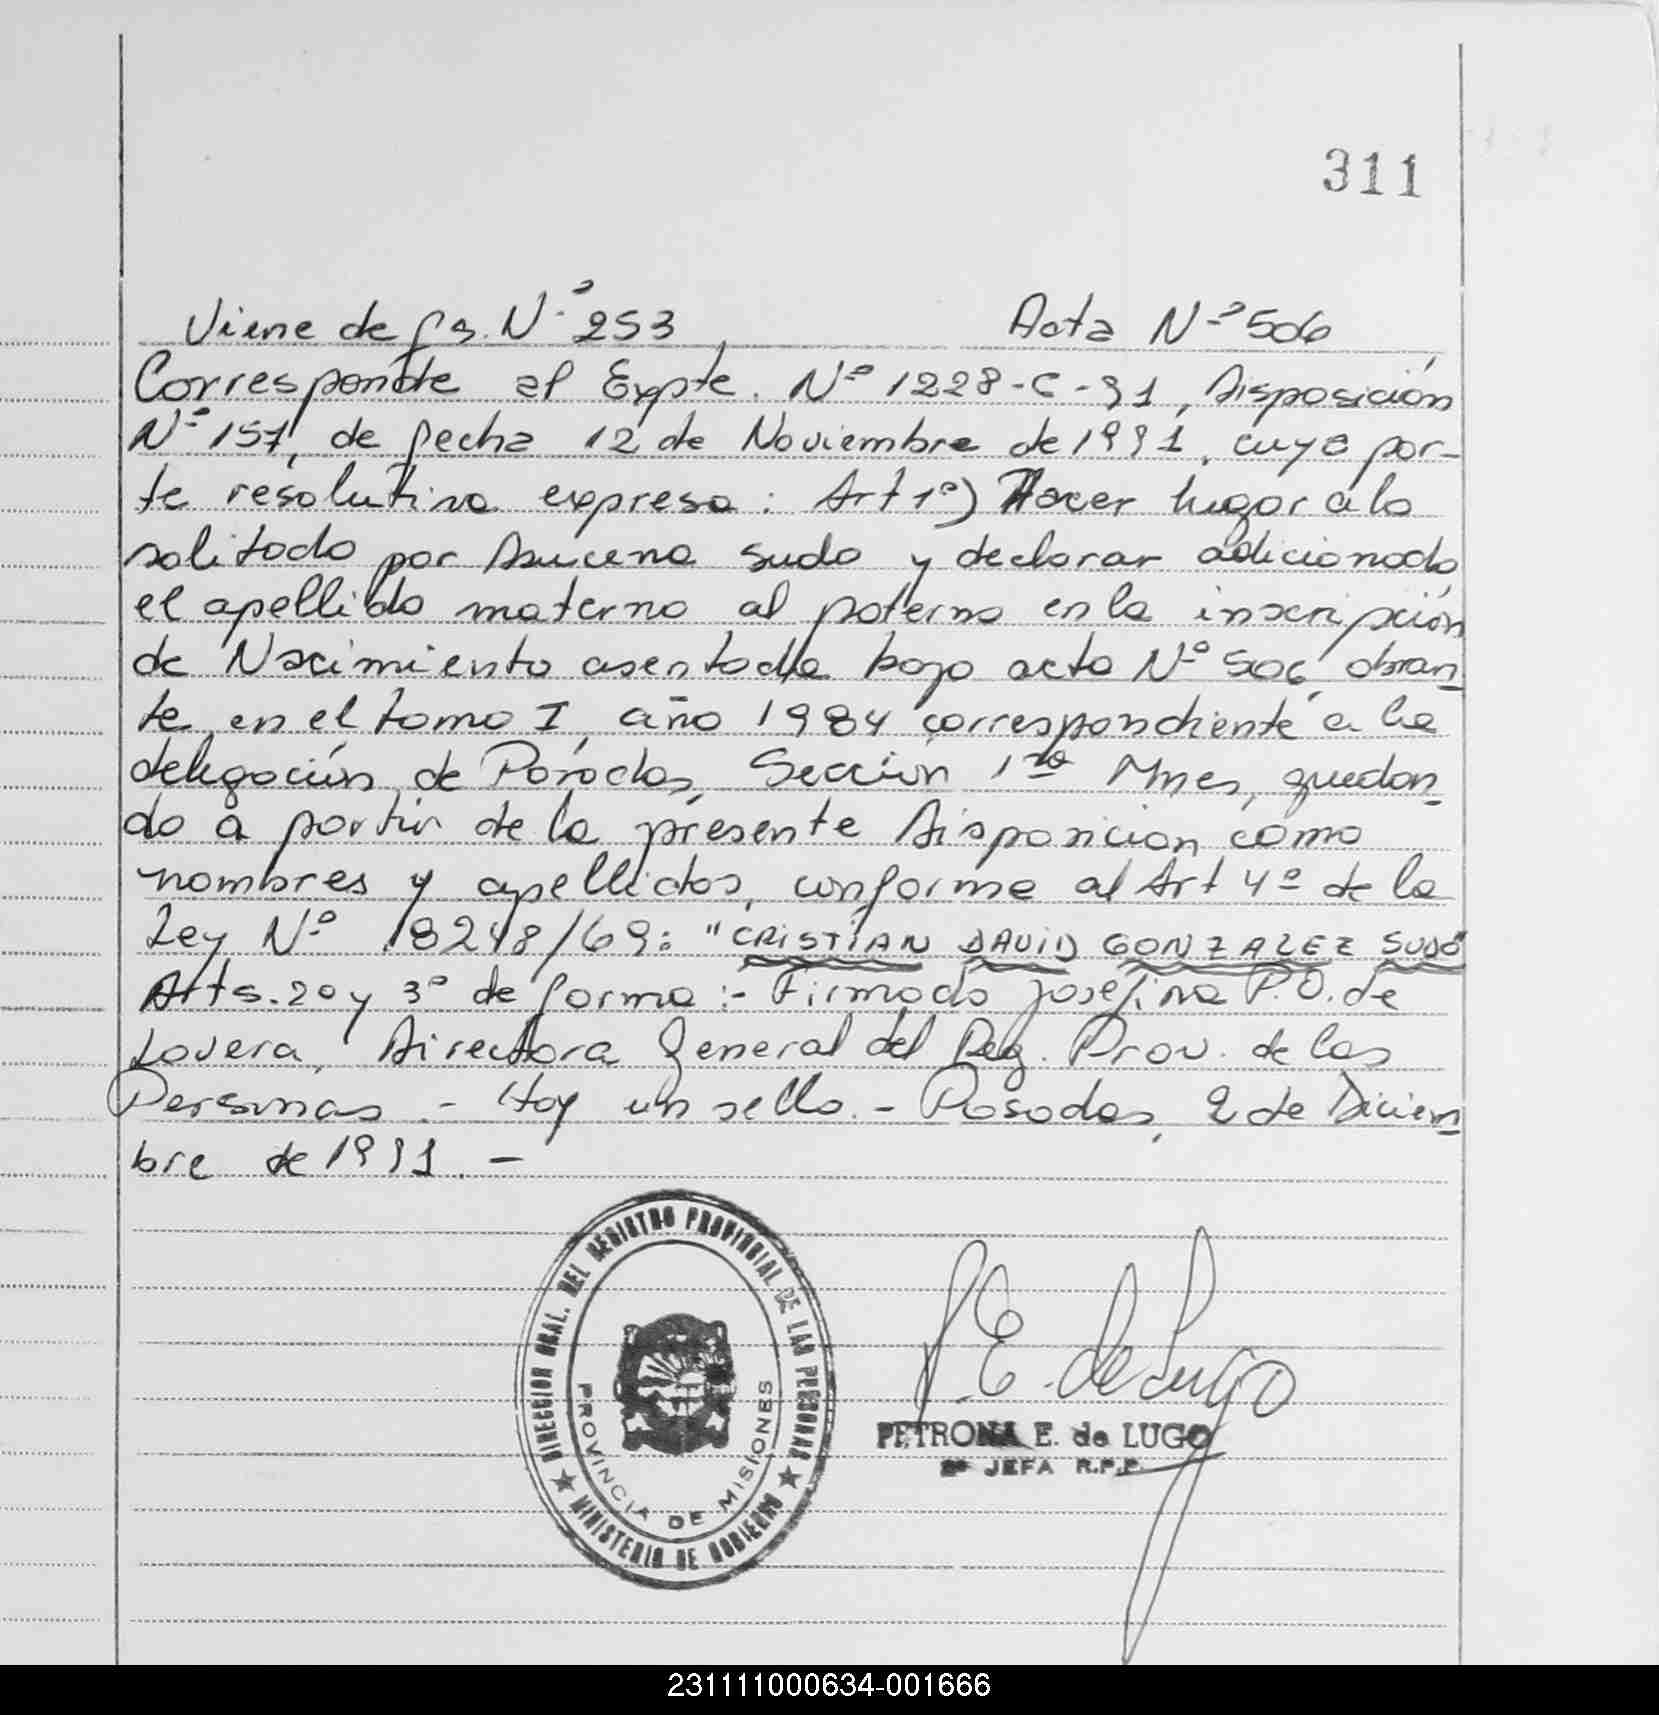 311
Viene de fs. Nº 253 Acta Nº 506
Corresponde al Expte. Nº 1228-C-91, Disposición
Nº 157, de fecha 12 de Noviembre de 1991, cuya par-
te resolutiva expresa: Art 1º) Hacer lugar a lo
solitado por Azucena Sudo y declarar adicionado
el apellido materno al paterno en la inscripción
de Nacimiento asentada bajo acta Nº 506, obran
te en el tomo I, año 1984 correspondiente a la
delegación de Posadas, Sección 1ra Mnes, quedan
do a partir de la presente Disposicion como
nombres y apellidos, conforme al Art 4º de la
Ley Nº 18248/69: "CRISTIAN DAVID GONZALEZ SUDO"
Arts. 2o y 3º de forma:- Firmado Josefina P.O. de
Lovera, Directora General del Reg. Prov. de las
Personas.- Hay un sello.- Posadas, 2 de Diciem
bre de 1991.-
DIRECCION GRAL. DEL REGISTRO PROVINCIAL DE LAS PERSONAS
PROVINCIA DE MISIONES
★ MINISTERIO DE GOBIERNO ★
P.E. de Lugo
PETRONA E. de LUGO
JEFA R.P.P.
231111000634-001666